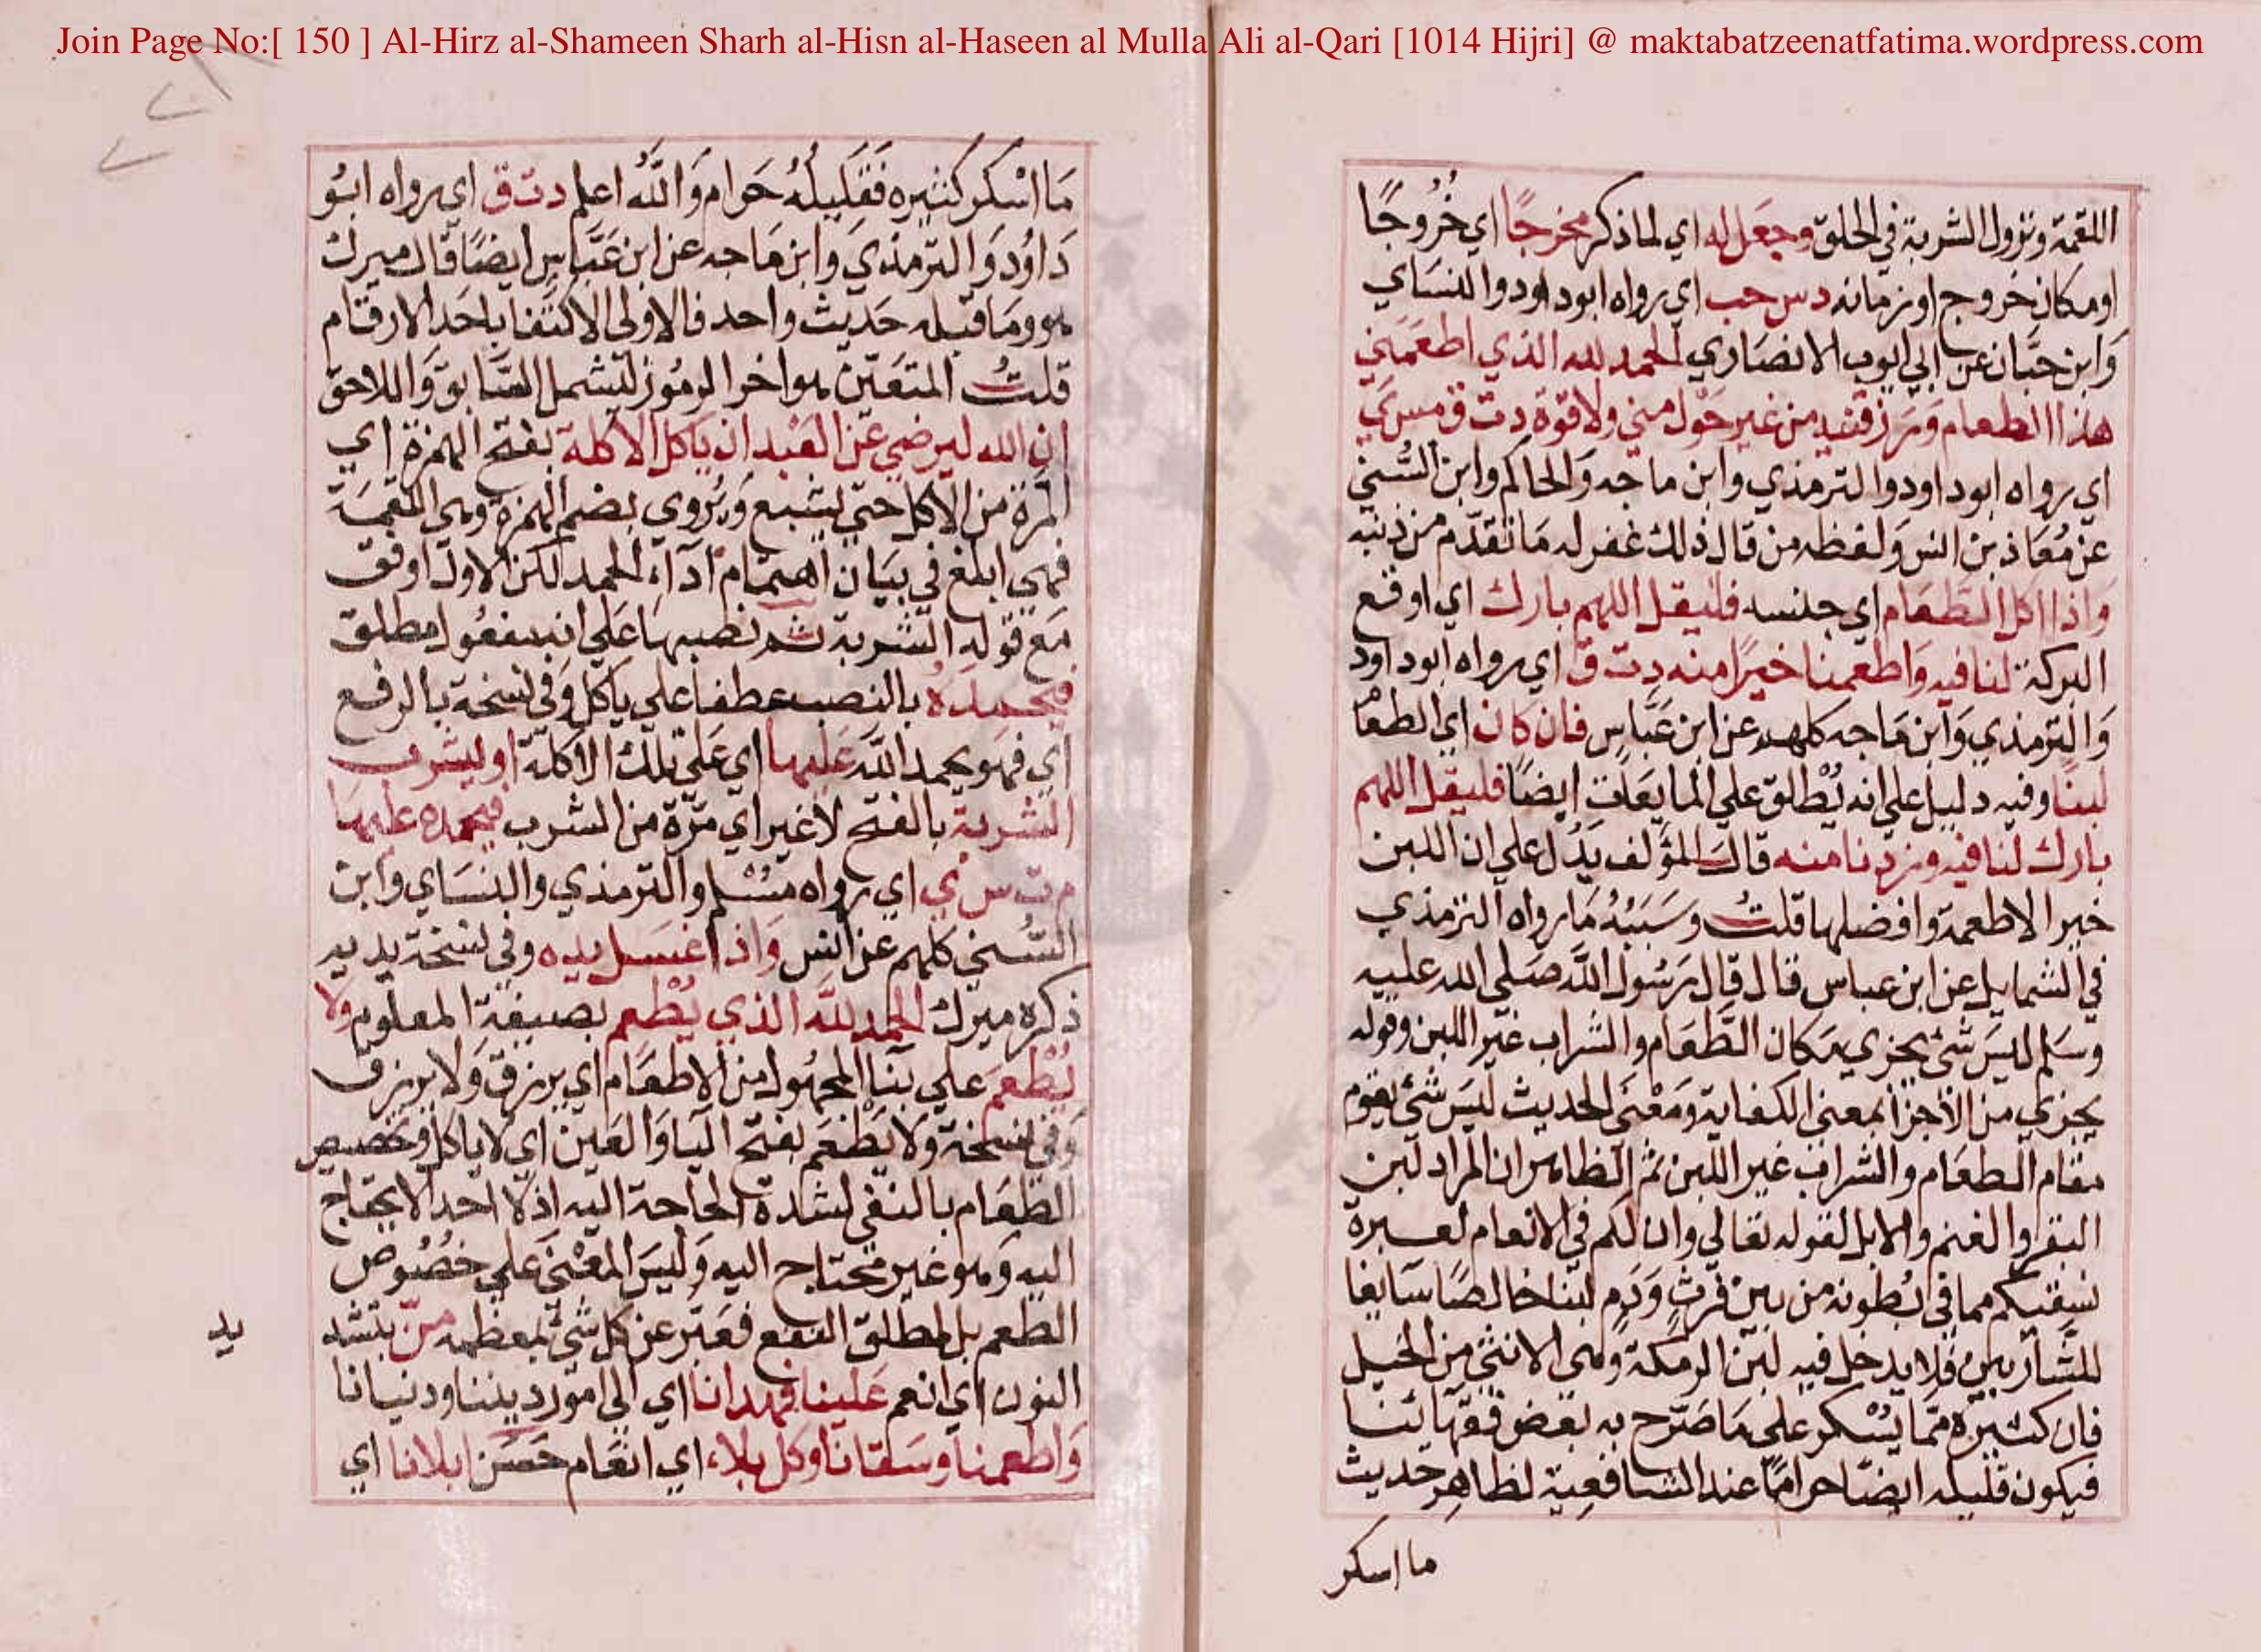 Join Page No:[ 150 ] Al-Hirz al-Shameen Sharh al-Hisn al-Haseen al Mulla Ali al-Qari [1014 Hijri] @ maktabatzeenatfatima.wordpress.com
اللقمة ونزول الشربة في الحلق وجعل له اي لما ذكر مخرجًا اي خُرُوجًا
او مكان خروج او زمانه د س حب اي رواه ابو داود والنسَاي
وَابن حبَّان عن ابي ايوب الانصَاري الحمد لله الذي اطعَمَني
هذا الطعام وَرَزقنيه من غير حَوْل مني ولا قوة د ت ق مس ي
اي رواه ابو داود والترمذي وابن ماجه وَالحاكم وابن السُّني
عن مُعَاذ بن انس وَلفظه من قال ذلك غفر له مَا تقدّم من ذنبه
وَاذا اكل الطعَام اي جنسه فليقل اللهم بارك اي اوقع
البركة لنا فيه وَاطعمنا خيرًا منه د ت ق اي رواه ابو داود
وَالترمذي وَابن مَاجه كلهم عن ابن عَبَّاس فان كان اي الطعَا
لبنًا وفيه دليل على انه يُطْلق على المايعَات ايضًا فليقل اللهم
بارك لنا فيه وزدنا منه قال المؤلف يَدُل على ان اللبن
خير الاطعمة وافضلها قلتُ وسَبَبُهُ مَا رواه الترمذي
في الشمايل عن ابن عباس قال قال رَسُول الله صَلى الله عليه
وسَلم ليسَ شئ يجزي مكان الطَّعَام والشراب غير اللبن وقوله
يجزي من الاجزا بمعنى الكفاية وَمَعْنى الحديث ليسَ شئ يقوم
مقام الطعَام والشراب غير اللبن ثم الظاهر ان المراد لبن
البقر والغنم والابل لقوله تعالي وان لكم في الانعام لعبرة
نسقيكم مما في بُطونه من بين فرثٍ وَدَمٍ لبنا خالصًا سَايغا
للشَّاربين فلا يدخل فيه لبن الرمكة وهي الانثي من الخيل
فان كثيرَه ممّا يُسْكر على مَا صَرّح به بعض فقهائنا
فيكون قليله ايضًا حرامًا عند الشافعية لظاهر حديث
ما اسكر
مَا اسْكر كثيره فَقَلِيلُهُ حَرام وَاللهُ اعلم د ت ق اي رواه ابُو
دَاوُد وَالترمذيَ وَابن مَاجه عن ابن عَبَّاس ايضًا قال ميرك
هو ومَا قبله حَديث واحد فالاولى الاكتفا باحَد الارقام
قلتُ المتعَيّن هو اخر الرموُز ليشمل السَّابق وَاللاحق
ان الله ليرضي عَن العَبْد ان يَاكل الاكلة بفتح الهمزة اي
المرّة من الاكل حتي يشبع وَيُروي بضم الهمزة وهي اللقمَة
فهي ابلغ في بيَان اهتمام اداء الحمد لكن الاول اوفق
مَع قوله الشربة ثم نصبهَا عَلي انه مفعُول مطلق
فيحمدَهُ بالنصب عطفا علي ياكل وَفي نسخة بالرفع
اي فهو يحمد الله عَليها اي عَلي تلك الاكلة او ليشرب
الشربة بالفتح لا غير اي مَرّة من الشرب فيحمده عليهَا
م ت س ي اي رواه مسْلم والترمذي والنسَاي وابن
السُّني كلهم عن انس وَاذا غسَل يده وفي نسخة يديه
ذكره ميرك الحمد لله الذي يُطْعِم بصيغة المعلوم وَلا
يُطْعَم عَلي بنا المجهُول من الاطعَام اي يرزق وَلا يرزق
وَفي نسخة وَلا يَطْعَم بفتح اليا وَالعَين اي لا ياكل وتخصيص
الطعَام بالنفي لشدة الحاجة اليه اذ لا احد الا يحتاج
اليه وَهو غير محتاج اليه وَليسَ المعْنَي عَلي خصُوص
الطعم بل مطلق النفع فعَبّر عن كل شئ بمعظمه منّ بتشد
يد
النون اي انعم عَلينا فهدانا اي الي امور ديننا ودنيانا
وَاطعمنا وسَقانا وكل بلاء اي انعَام حَسَن ابلانا اي